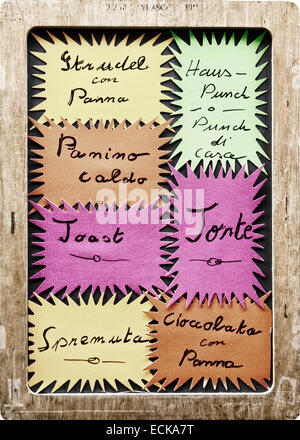 Strudel
con
Panna
Haus-
Punch
o
Punch
di
casa
Panino
caldo
Toast
Torte
Spremuta
Cioccolata
con
Panna
alamy
ECKA7T